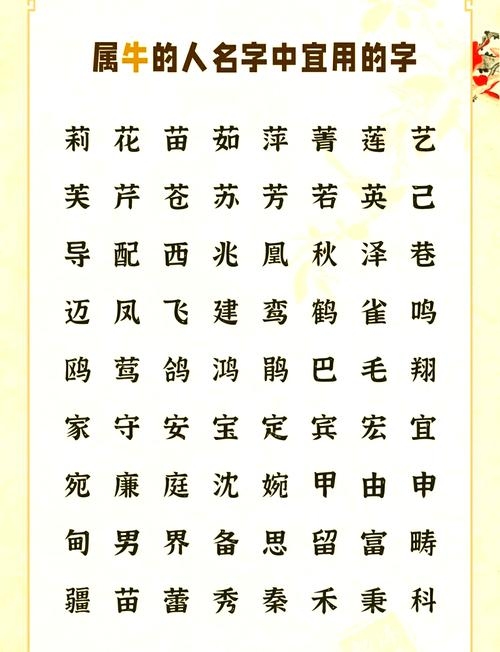 属牛的人名字中宜用的字
莉 花 苗 茹 萍 菁 莲 艺
芙 芹 苍 苏 芳 若 英 己
导 配 西 兆 凰 秋 泽 巷
迈 凤 飞 建 鸾 鹤 雀 鸣
鸥 莺 鸽 鸿 鹃 巴 毛 翔
家 守 安 宝 定 宾 宏 宜
宛 廉 庭 沈 婉 甲 由 申
甸 男 界 备 思 留 富 畴
疆 苗 蕾 秀 秦 禾 秉 科